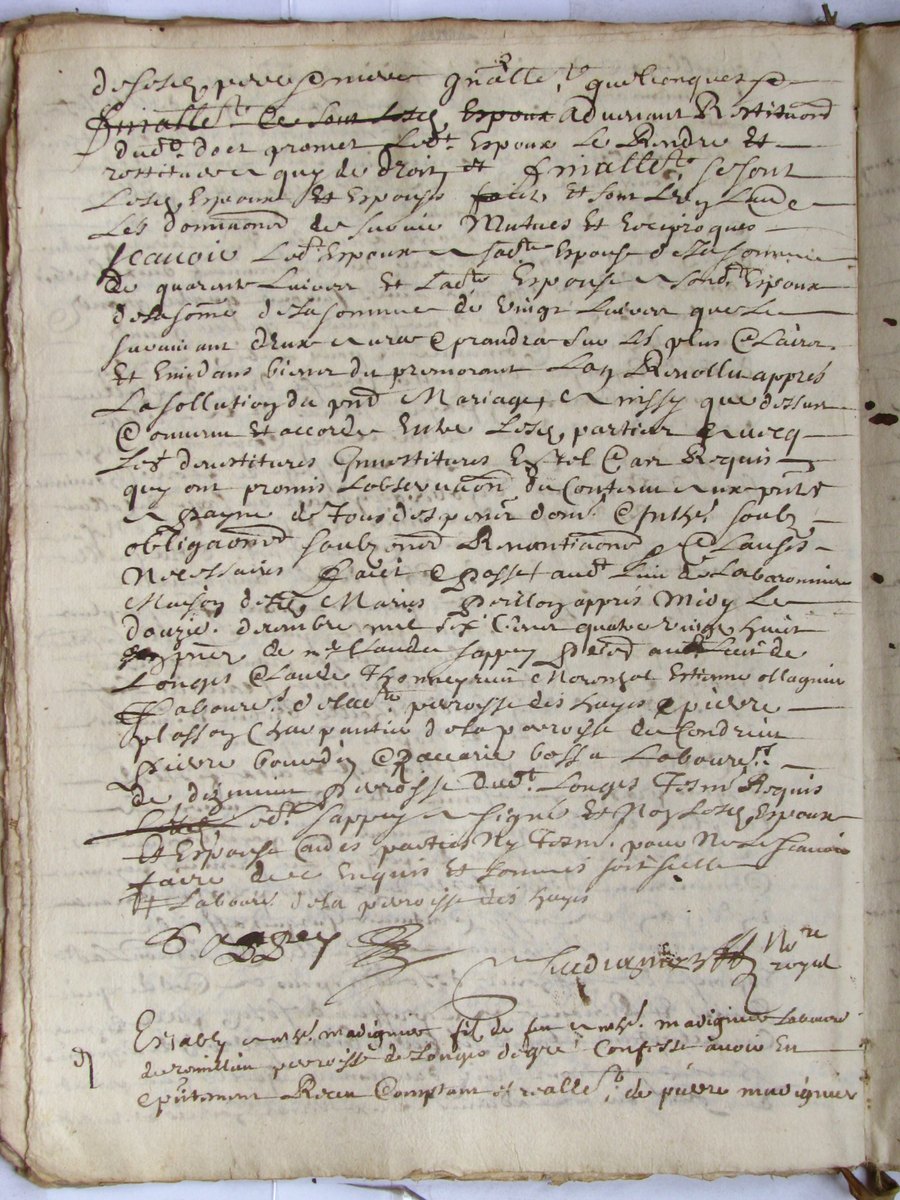 desd. pere & mere gnallem.t quelconques &
finallem.t se sont lesd. Espoux Advenant Restituaon
dud. dot promet led.t Espoux Le Rendre Et
restituer a quy de droit et finallem.t se sont
Lesd. Espoux Et Espouse faict Et sont
Les donnaons de survie Mutues Et Reciproques
scavoir Led.t Espoux a sad.te Espouse de la somme
de quarante Livres Et Lad.te Espouse a sond.t Espoux
de la somme de la somme de vingt Livres que Le
survivant deux aura & prandra sur Les plus Clairs
Et Evidans biens du premorant appres
La sollution du pnt Mariage, Ainssy que dessus
Convenu Et accordé Entre Lesd. parties avecq
Les devestitures Investitures En tel Cas Requis
quy ont promis Lobservaon du Contenu aux pntes
a payne de Tous despens dom. & Inthe. soubz
obligaons soubzons Renontiaons & Clauses
Necessaires faict & passé aud.t Lieu de Labaronniere
Maison de Marius appres Midy Le
douzie. decembre mil six Cens quatre vingt huict
En pnce de m.e Claude Sappey dud. Lieu de
Longes Claude Estienne Ollagnier
Laboure.s de la parroisse des hayes & pierre
plasson Charpantier de la parroisse de Condrieu
pierre bourdin & Zacarie bossu Laboure.rs
de dizimieu parroisse dud.t Longes Tesm. Requis
Led.t Sappey a signé Et Non Lesd. Espoux
Et Espouse Ny Tesm. pour Ne Le scavoir
faire de ce Enquis Et sommés soit scellé
Laboure. de la parroisse des hayes
Sappey
No.re royal
Estably Anth.e madignier fil de feu Anth.e madignier Laboure.
de romillieu parroisse de Longes degre. Confesse avoir Eu
& pntement Receu Comptant et reallem.t de pierre madignier